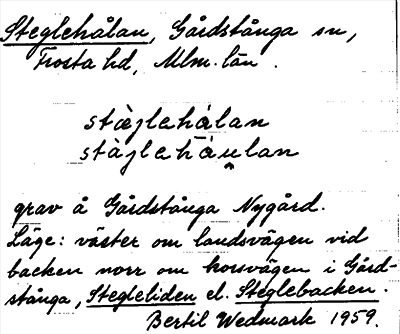 Steglehålan, Gårdstånga sn,
Frosta hd, Mlm. län.
stæ̀glehȧlan
stàglehāu̯lan
grav å Gårdstånga Nygård.
Läge: väster om landsvägen vid
backen norr om korsvägen i Gård-
stånga, Stegleliden el. Steglebacken.
Bertil Wedmark 1959.